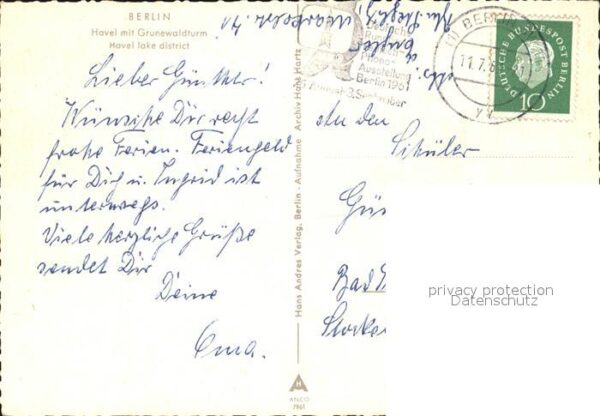 BERLIN
Havel mit Grunewaldturm
Havel lake district
Lieber Günther!
Wünsche Dir recht
frohe Ferien. Feriengeld
für Dich u. Ingrid ist
unterwegs.
Viele herzliche Grüße
sendet Dir
Deine
Oma.
Hans Andres Verlag, Berlin - Aufnahme Archiv Hans Hartz
ANCO
7961
Deutsche
Rund
Phono-
Ausstellung
Berlin 1961
3. September
BERLIN
11.7.6
DEUTSCHE BUNDESPOST BERLIN
10
An den
Schüler
Gü
Bad
Stocke
privacy protection
Datenschutz